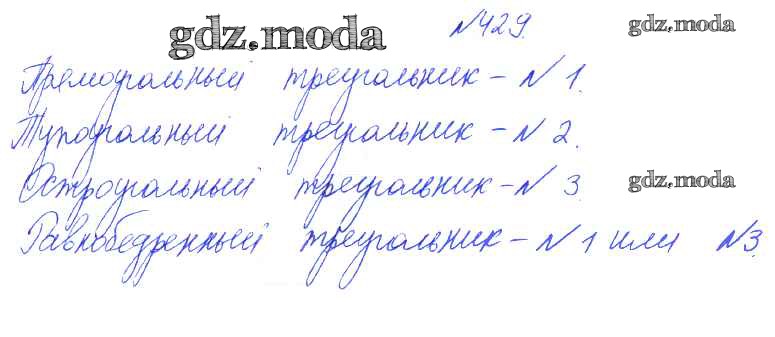 gdz.moda №429. gdz.moda
Прямоугольный треугольник - № 1.
Тупоугольный треугольник - № 2.
Остроугольный треугольник - № 3. gdz.moda
Равнобедренный треугольник - № 1 или №3.